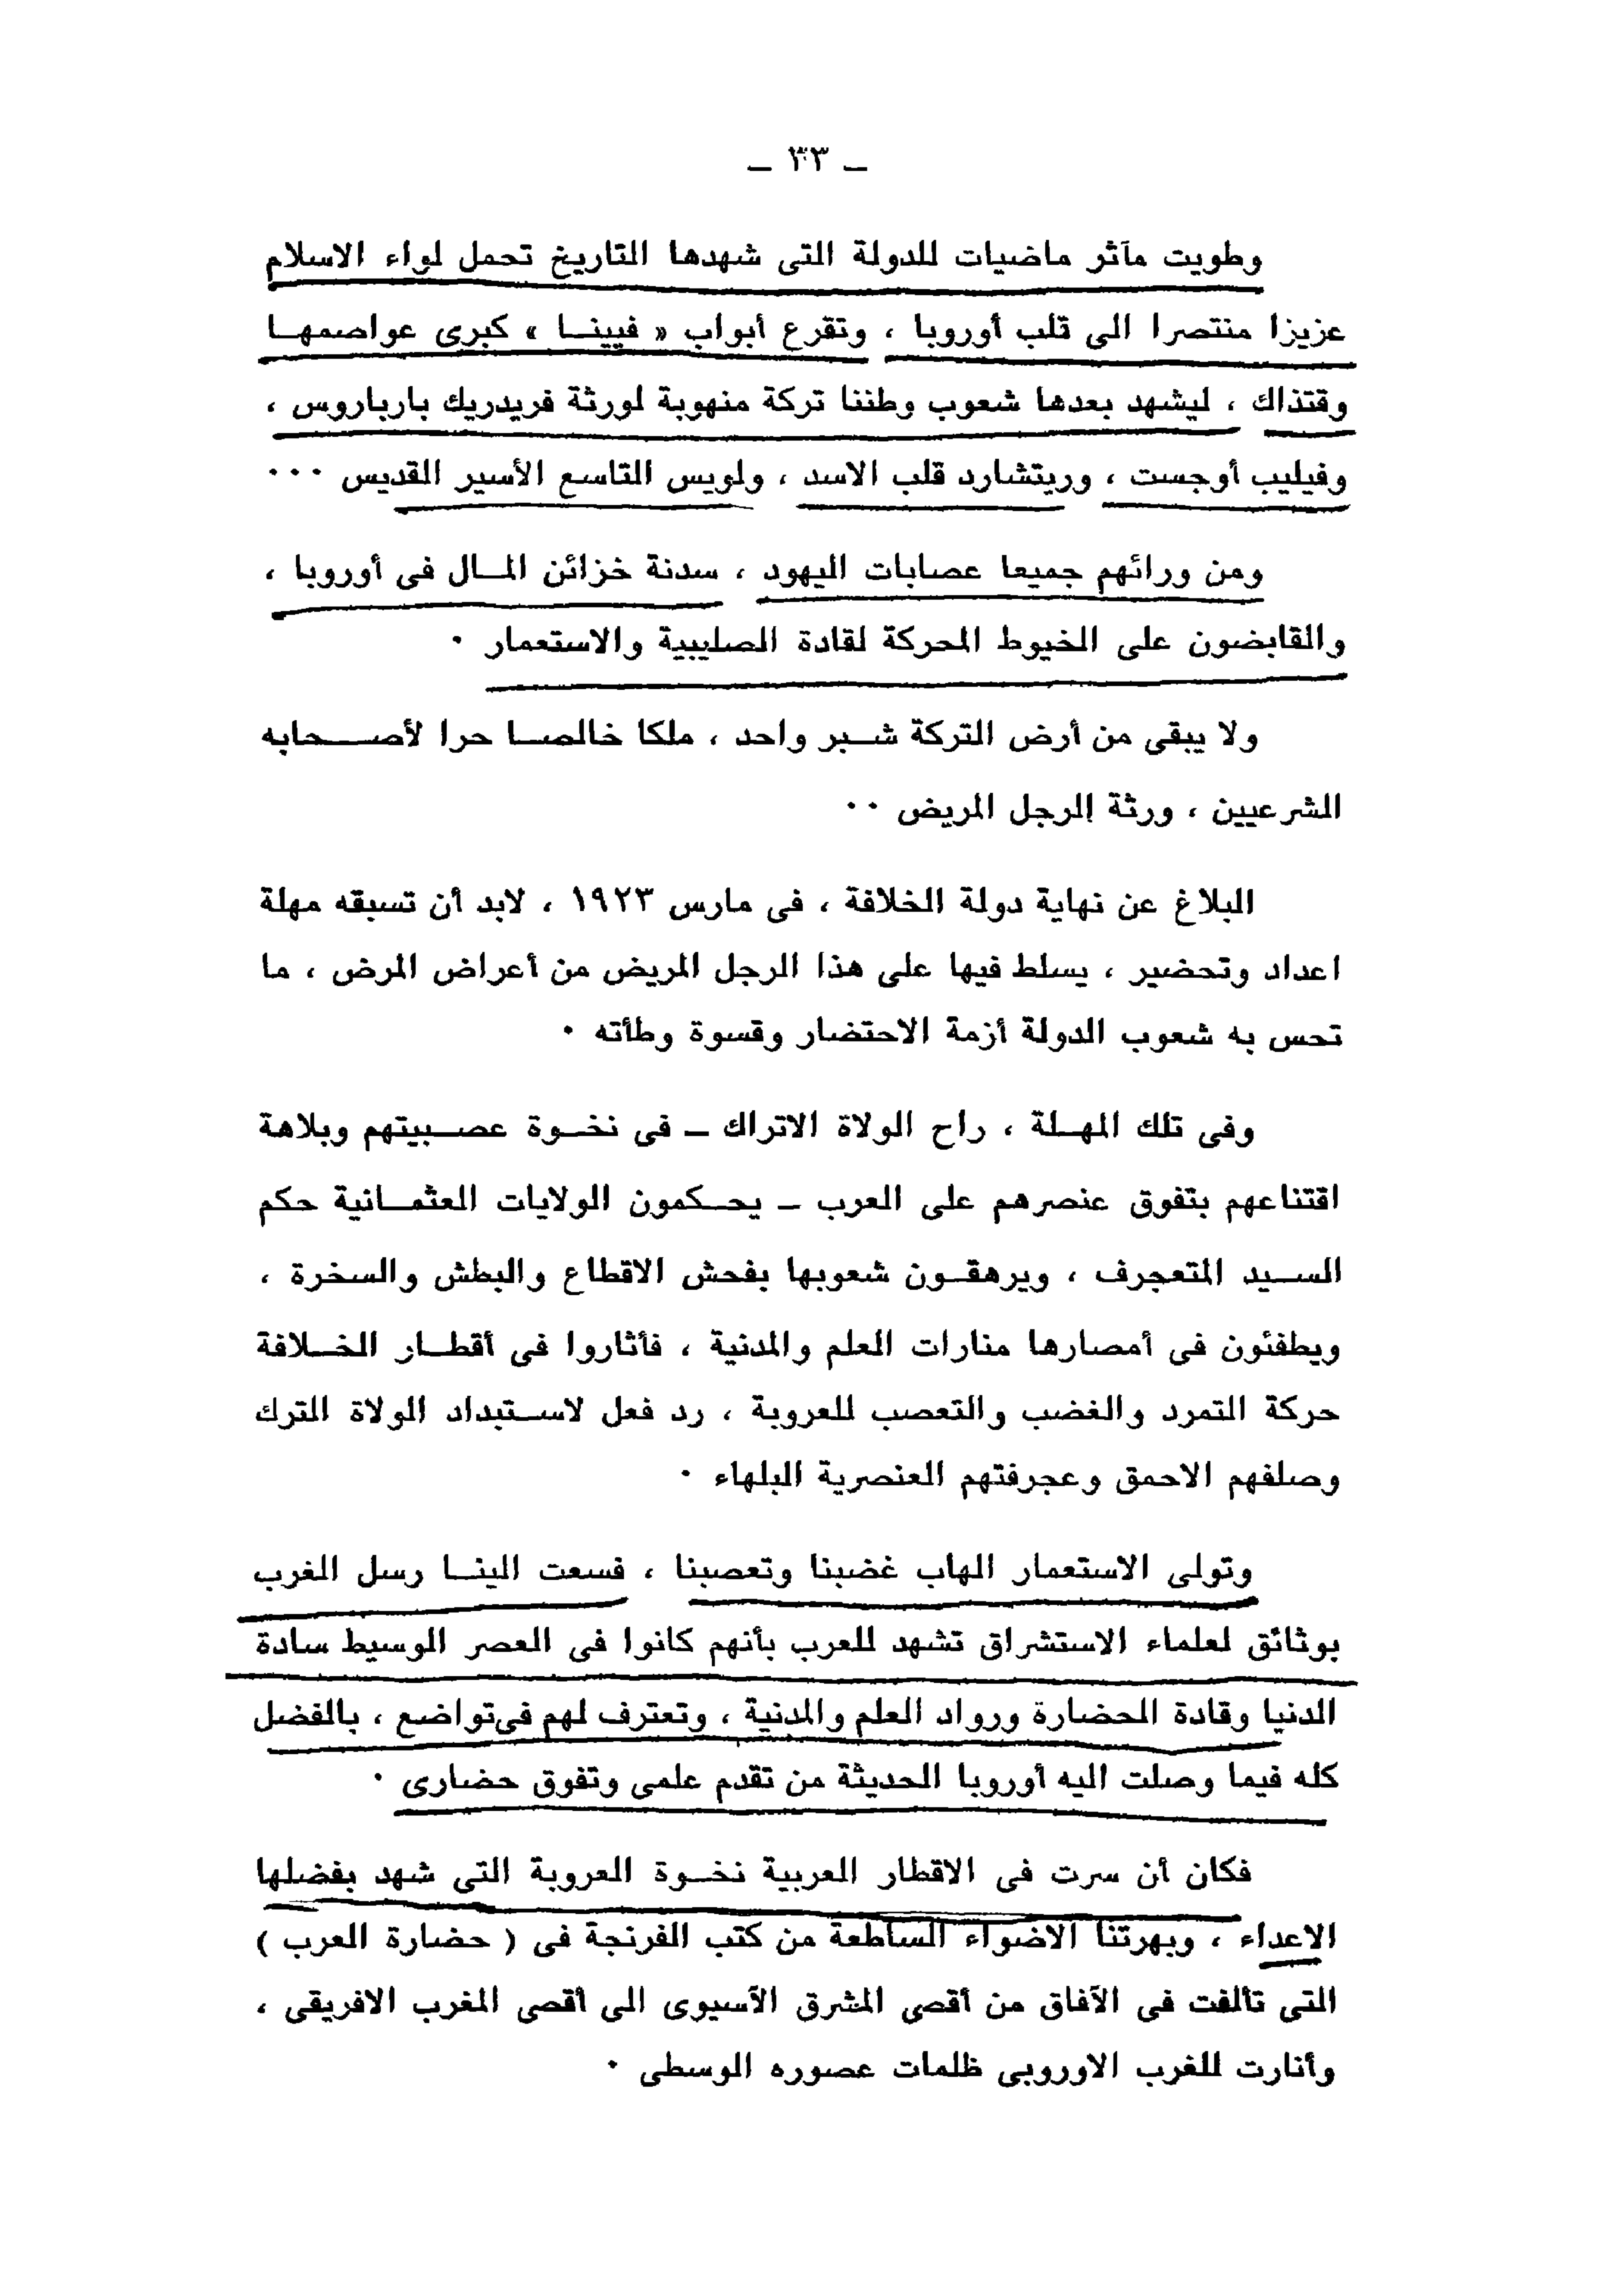 ـ ٣٣ ـ
وطويت مآثر ماضيات للدولة التى شهدها التاريخ تحمل لواء الاسلام
عزيزا منتصرا الى قلب أوروبا ، وتقرع أبواب « فيينا » كبرى عواصمها
وقتذاك ، ليشهد بعدها شعوب وطننا تركة منهوبة لورثة فريدريك بارباروس ،
وفيليب أوجست ، وريتشارد قلب الاسد ، ولويس التاسع الأسير القديس ٠٠٠
ومن ورائهم جميعا عصابات اليهود ، سدنة خزائن المال فى أوروبا ،
والقابضون على الخيوط المحركة لقادة الصليبية والاستعمار ٠
ولا يبقى من أرض التركة شبر واحد ، ملكا خالصا حرا لأصحابه
الشرعيين ، ورثة الرجل المريض ٠٠
البلاغ عن نهاية دولة الخلافة ، فى مارس ١٩٢٣ ، لابد أن تسبقه مهلة
اعداد وتحضير ، يسلط فيها على هذا الرجل المريض من أعراض المرض ، ما
تحس به شعوب الدولة أزمة الاحتضار وقسوة وطأته ٠
وفى تلك المهلة ، راح الولاة الاتراك ـ فى نخوة عصبيتهم وبلاهة
اقتناعهم بتفوق عنصرهم على العرب ـ يحكمون الولايات العثمانية حكم
السيد المتعجرف ، ويرهقون شعوبها بفحش الاقطاع والبطش والسخرة ،
ويطفئون فى أمصارها منارات العلم والمدنية ، فأثاروا فى أقطار الخلافة
حركة التمرد والغضب والتعصب للعروبة ، رد فعل لاستبداد الولاة الترك
وصلفهم الاحمق وعجرفتهم العنصرية البلهاء ٠
وتولى الاستعمار الهاب غضبنا وتعصبنا ، فسعت الينا رسل الغرب
بوثائق لعلماء الاستشراق تشهد للعرب بأنهم كانوا فى العصر الوسيط سادة
الدنيا وقادة الحضارة ورواد العلم والمدنية ، وتعترف لهم فى تواضع ، بالفضل
كله فيما وصلت اليه أوروبا الحديثة من تقدم علمى وتفوق حضارى ٠
فكان أن سرت فى الاقطار العربية نخوة العروبة التى شهد بفضلها
الاعداء ، وبهرتنا الاضواء الساطعة من كتب الفرنجة فى ( حضارة العرب )
التى تألفت فى الآفاق من أقصى المشرق الآسيوى الى أقصى المغرب الافريقى ،
وأنارت للغرب الاوروبى ظلمات عصوره الوسطى ٠